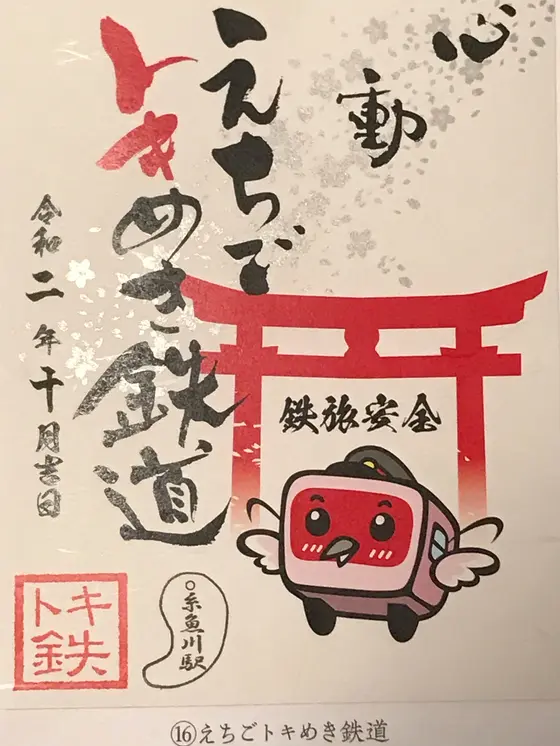 心動
えちご
トキめき鉄道
令和二年十月吉日
鉄旅安全
トキ
鉄
糸魚川駅
⑯えちごトキめき鉄道